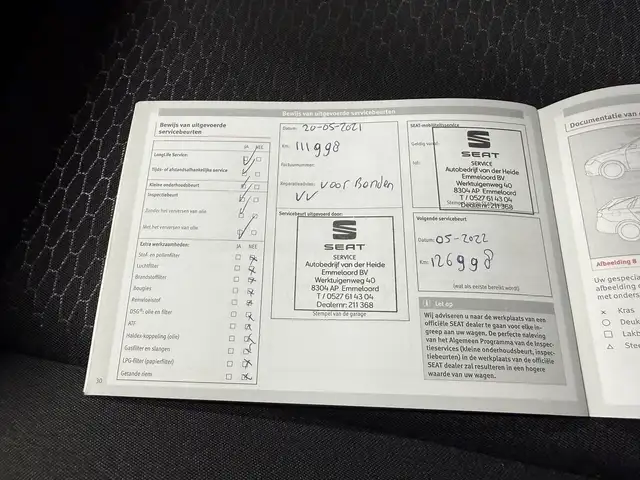 Bewijs van uitgevoerde servicebeurten
Bewijs van uitgevoerde
servicebeurten
JA NEE
LongLife Service:
Tijds- of afstandsafhankelijke service
Kleine onderhoudsbeurt
Inspectiebeurt
Zonder het verversen van olie
Met het verversen van olie
Extra werkzaamheden: JA NEE
Stof- en pollenfilter
Luchtfilter
Brandstoffilter
bougies
Remvloeistof
DSG®: olie en filter
ATF
Haldex-koppeling (olie)
Gasfilter en slangen
LPG-filter (papierfilter)
Getande riem
30
Datum: 20-05-2021
Km: 111998
voor Banden
VV
Servicebeurt uitgevoerd door:
SEAT
SERVICE
Autobedrijf van der Heide
Emmeloord BV
Werktuigenweg 40
8304 AP Emmeloord
T / 0527 61 43 04
Dealernr: 211 368
Stempel van de garage
SEAT-mobiliteitsservice
Geldig vanaf:
tot:
SEAT
SERVICE
Autobedrijf van der Heide
Emmeloord BV
Werktuigenweg 40
8304 AP Emmeloord
T / 0527 61 43 04
Dealernr: 211 368
Volgende servicebeurt
Datum: 05-2022
Km: 126998
(wat als eerste bereikt wordt)
Let op
Wij adviseren u naar de werkplaats van een
officiële SEAT dealer te gaan voor elke in-
greep aan uw wagen. De perfecte naleving
van het Algemeen Programma van de Inspec-
tieservices (kleine onderhoudsbeurt, inspec-
tiebeurten) in de werkplaats van een officiële
SEAT dealer zal resulteren in een hogere
waarde van uw wagen.
Documentatie van
Afbeelding 8
Uw gespecia
afbeelding
met onder
× Kras
Deuk
Lakb
Ste